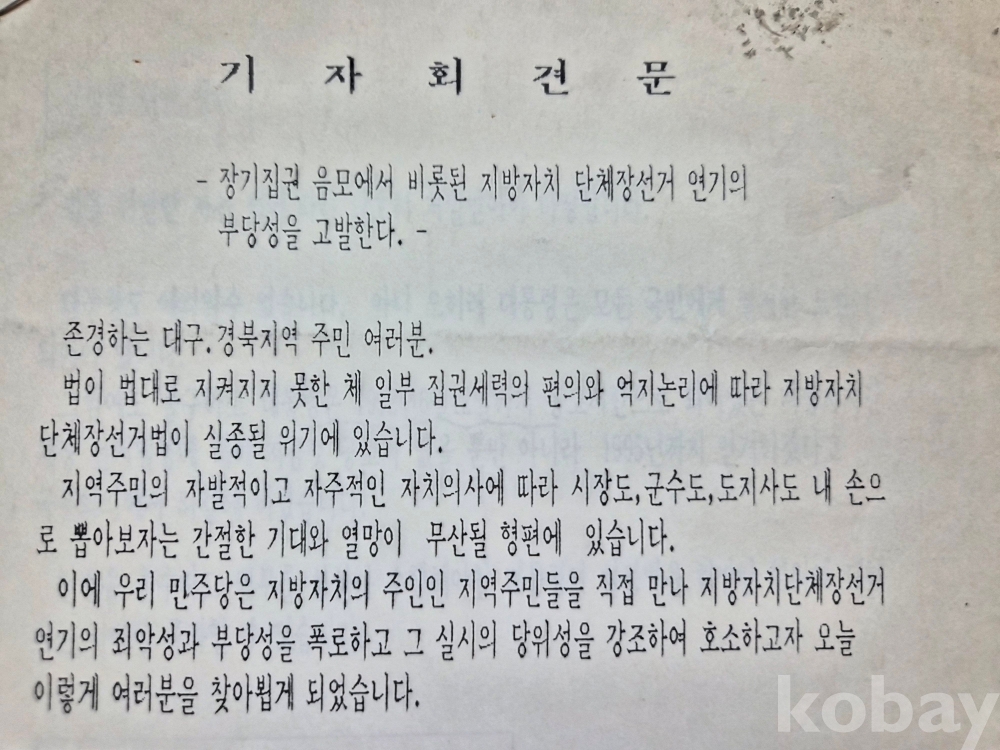 기 자 회 견 문
- 장기집권 음모에서 비롯된 지방자치 단체장선거 연기의
부당성을 고발한다. -
존경하는 대구.경북지역 주민 여러분.
법이 법대로 지켜지지 못한 체 일부 집권세력의 편의와 억지논리에 따라 지방자치
단체장선거법이 실종될 위기에 있습니다.
지역주민의 자발적이고 자주적인 자치의사에 따라 시장도,군수도,도지사도 내 손으
로 뽑아보자는 간절한 기대와 열망이 무산될 형편에 있습니다.
이에 우리 민주당은 지방자치의 주인인 지역주민들을 직접 만나 지방자치단체장선거
연기의 죄악성과 부당성을 폭로하고 그 실시의 당위성을 강조하여 호소하고자 오늘
이렇게 여러분을 찾아뵙게 되었습니다.
kobay